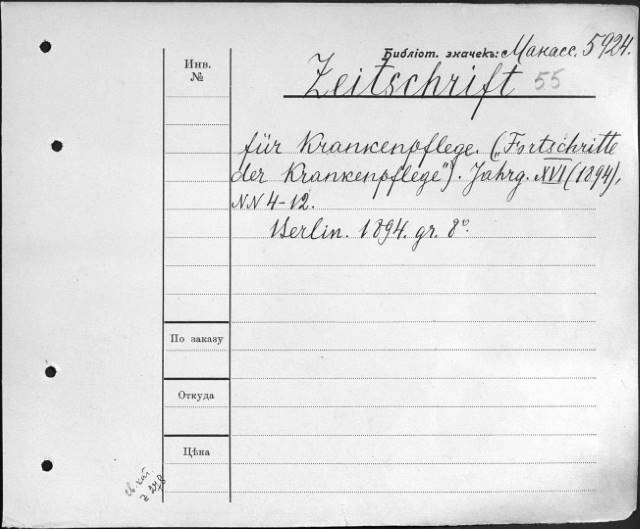 Библіот. значекъ: Манасс. 5924.
Инв. №
Zeitschrift 55
für Krankenpflege. („Fortschritte
der Krankenpflege"). Jahrg. XVI (1894),
NN 4-12.
Berlin. 1894. gr. 8°.
По заказу
Откуда
Цѣна